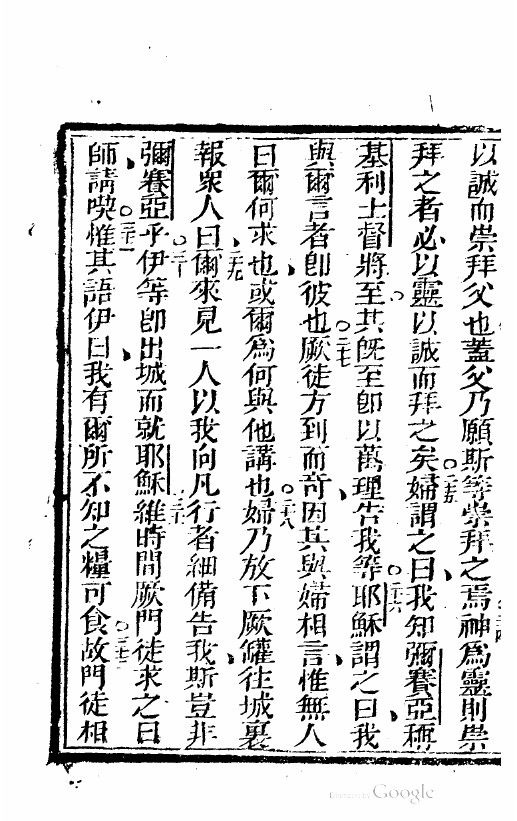 以誠而崇拜父也蓋父乃願斯等崇拜之焉神為靈則崇
拜之者必以靈以誠而拜之矣○二十五婦謂之曰我知彌賽亞稱
基利士督將至○其既至即以萬理告我等○二十六耶穌謂之曰我
與爾言者即彼也○二十七厥徒方到而奇因其與婦相言惟無人
曰爾何求也或爾為何與他講也○二十八婦乃放下厥罐往城裏
報眾人曰○二十九爾來見一人以我向凡行者細備告我斯豈非
彌賽亞乎○三十伊等即出城而就耶穌○三十一維時間厥門徒求之曰
師請喫○三十二惟其語伊曰我有爾所不知之糧可食○三十三故門徒相
Digitized by Google